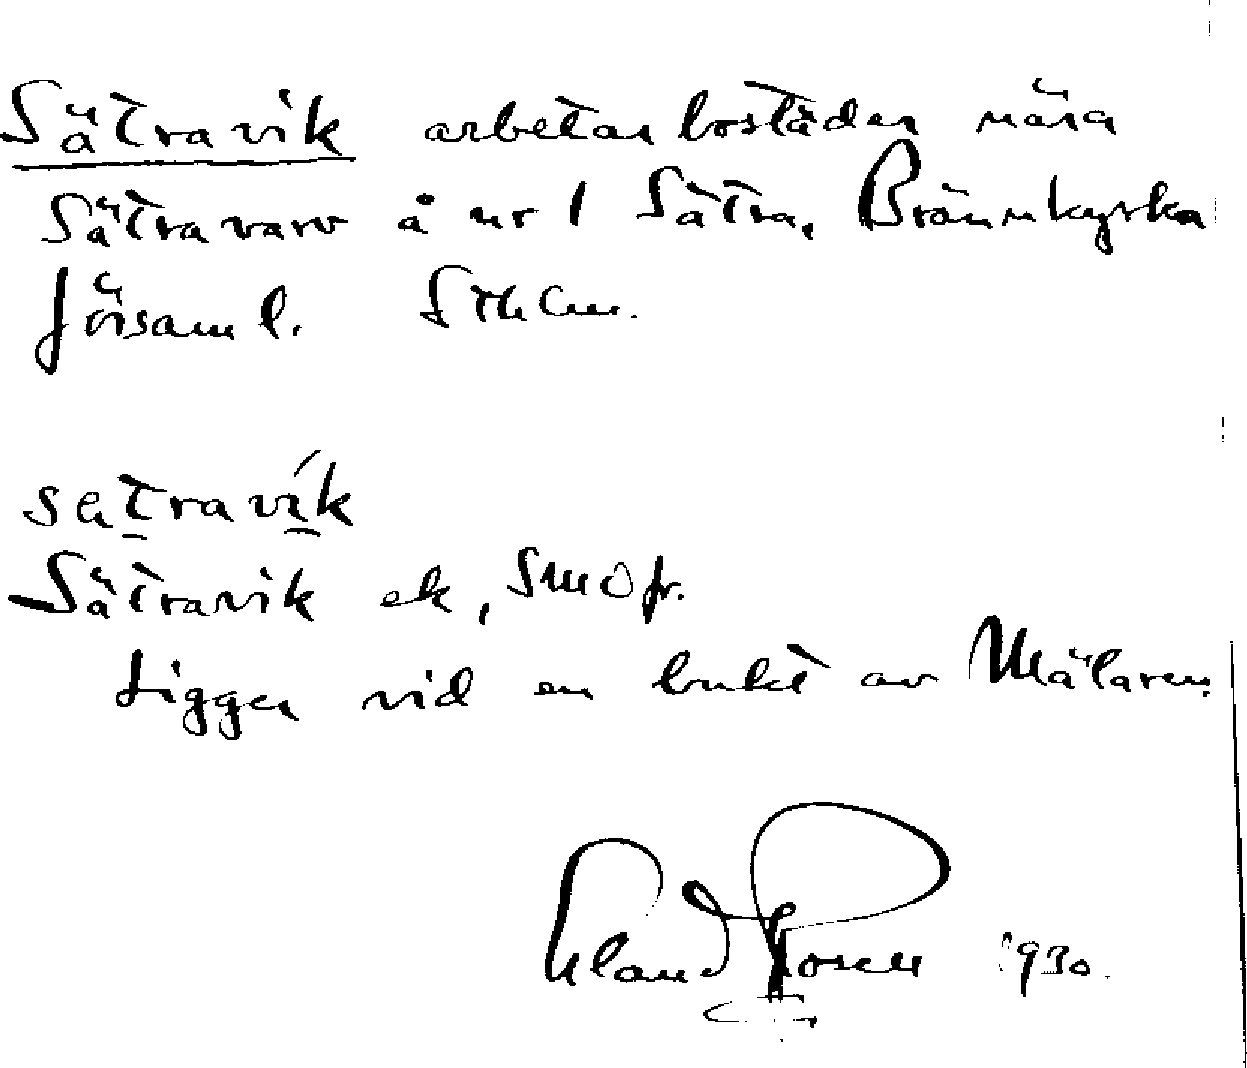 Sätravik arbetarbostäder nära
Sätravarv å nr 1 Sätra, Brännkyrka
församl. Sthlm.
sätravik
Sätravik ek,
Ligger vid en bukt av Mälaren.
Rosen 1930.